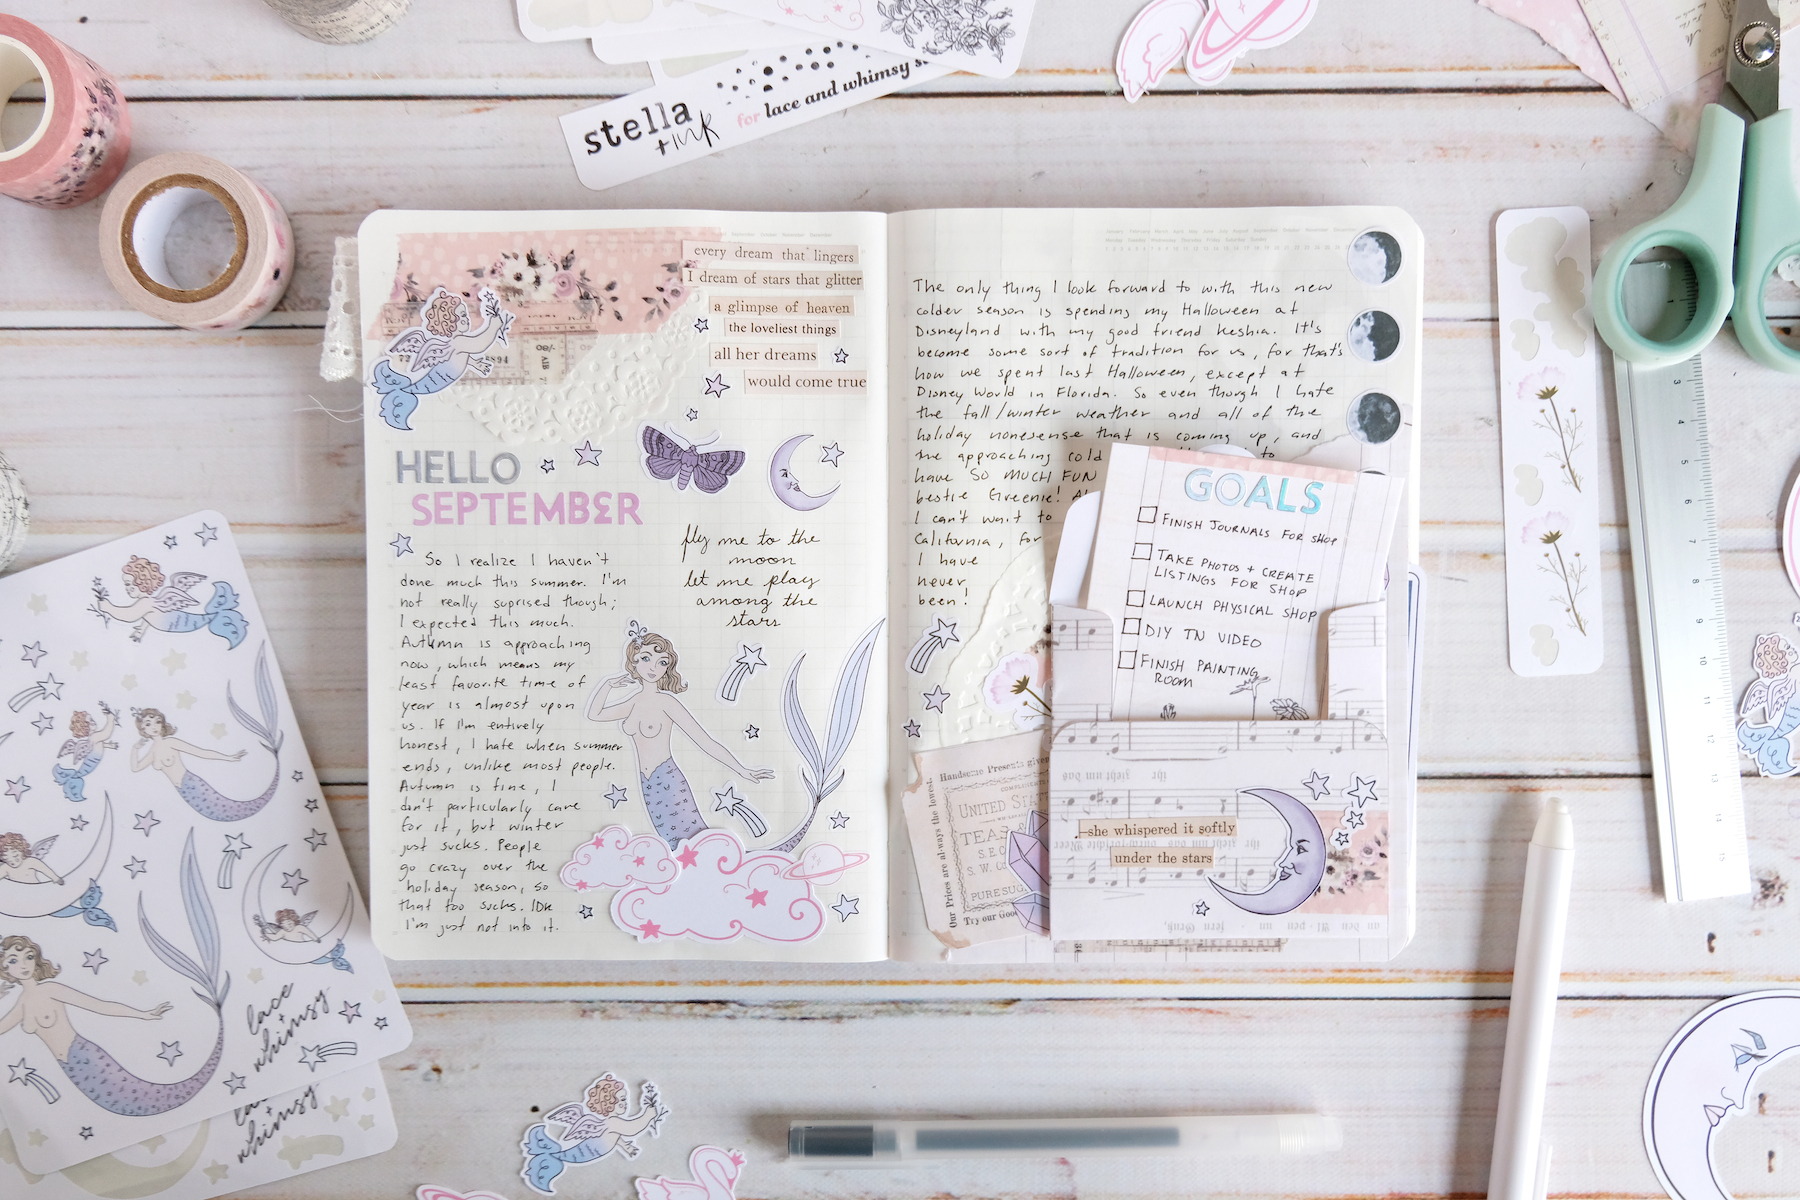 stella
+ink
for lace and whimsy s
every dream that lingers
I dream of stars that glitter
a glimpse of heaven
the loveliest things
all her dreams
would come true
72
8894
HELLO
SEPTEMBER
So I realize I haven't
done much this summer. I'm
not really suprised though;
I expected this much.
Autumn is approaching
now, which means my
least favorite time of
year is almost upon
us. If I'm entirely
honest, I hate when summer
ends, unlike most people.
Autumn is fine, I
don't particularly care
for it, but winter
just sucks. People
go crazy over the
holiday season, so
that too sucks. IDK
I'm just not into it.
fly me to the
moon
let me play
among the
stars
The only thing I look forward to with this new
colder season is spending my Halloween at
Disneyland with my good friend Keshia. It's
become some sort of tradition for us, for that's
how we spent last Halloween, except at
Disney World in Florida. So even though I hate
the fall/winter weather and all of the
holiday nonesense that is coming up, and
the approaching cold to
have SO MUCH FUN
bestie Greenie!
I can't wait to
California, for
I have
never
been!
GOALS
FINISH JOURNALS FOR SHOP
TAKE PHOTOS + CREATE
LISTINGS FOR SHOP
LAUNCH PHYSICAL SHOP
DIY TN VIDEO
FINISH PAINTING
ROOM
Handsome Presents given
UNITED STA
TEAS
S. W. Co
PURE SUG
Try our Goo
Our Prices are always the lowest.
she whispered it softly
under the stars
lace
+
whimsy
la
+
whimsy
3
4
5
6
7
8
9
10
11
12
13
14
15